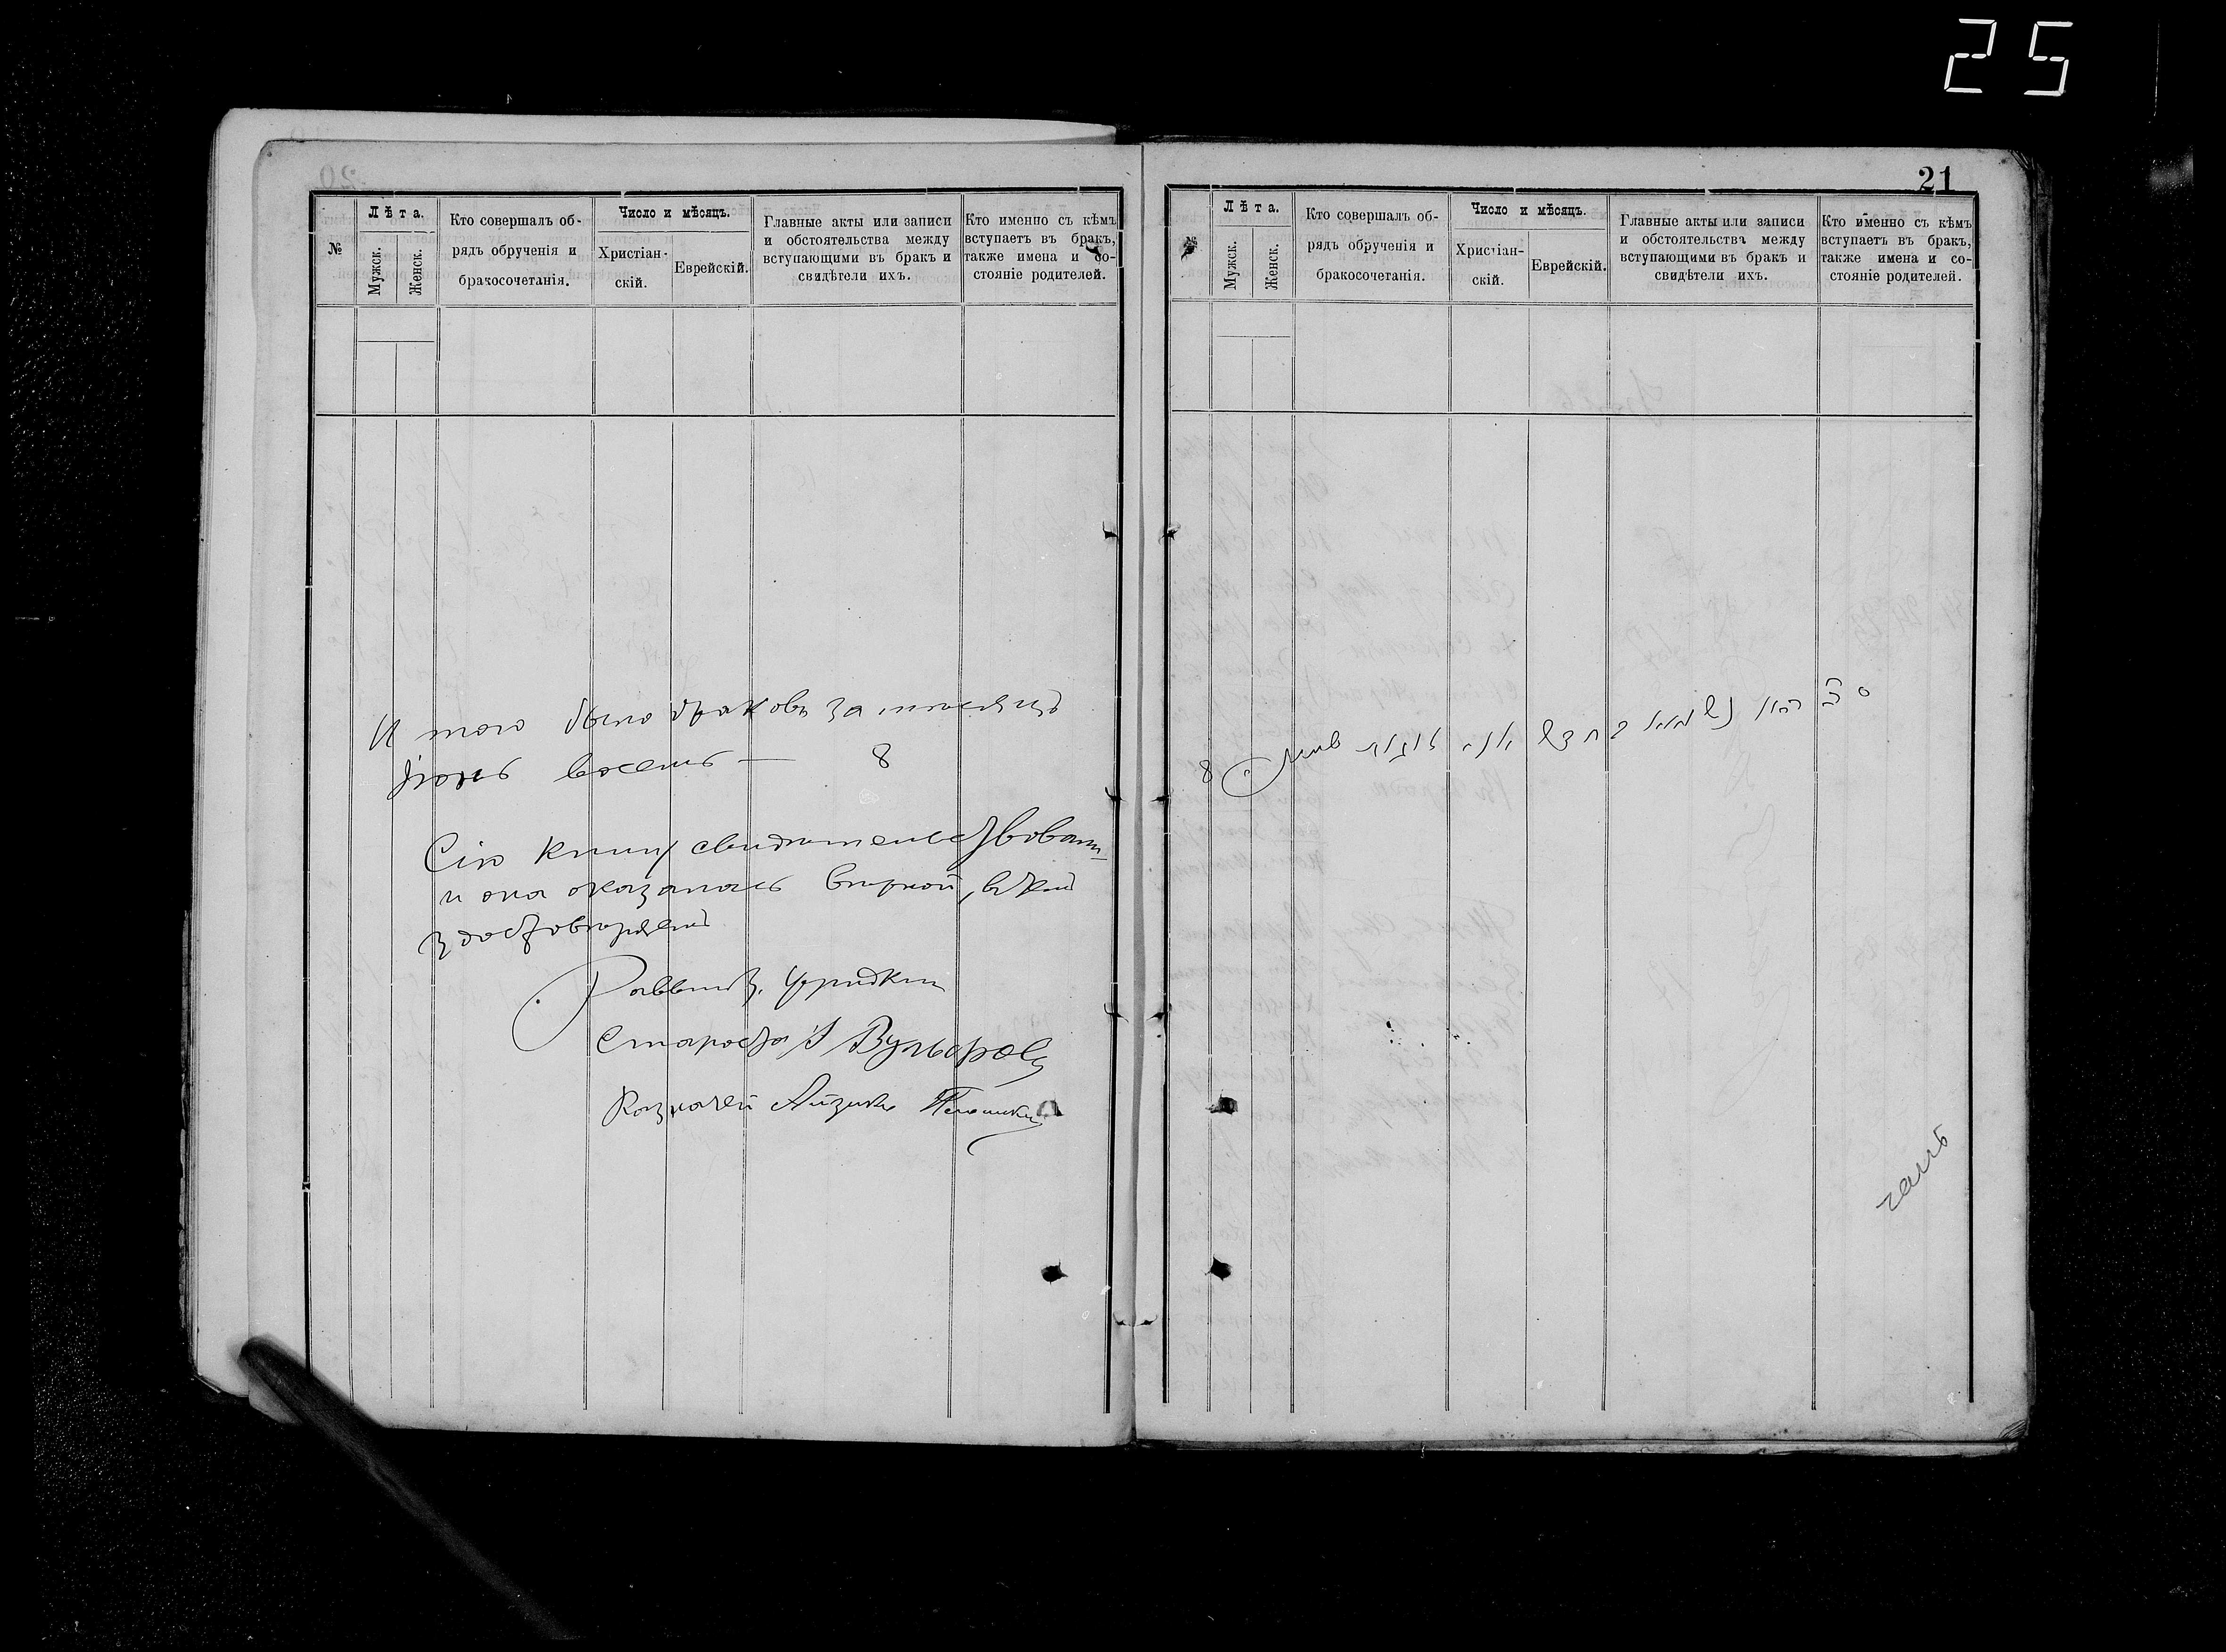 25
№
Лѣта.
Мужск.
Женск.
Кто совершалъ об-
рядъ обрученія и
бракосочетанія.
Число и мѣсяцъ.
Христіан-
скій.
Еврейскій.
Главные акты или записи
и обстоятельства между
вступающими въ бракъ и
свидѣтели ихъ.
Кто именно съ кѣмъ
вступаетъ въ бракъ,
также имена и со-
стояніе родителей.
И того было браковъ за мѣсяцъ
восемь — 8
Сію книгу свидѣтельствовали
и она оказалась вѣрной, въ чемъ
Раввинъ
Староста
Казначей Айзикъ
21
№
Лѣта.
Мужск.
Женск.
Кто совершалъ об-
рядъ обрученія и
бракосочетанія.
Число и мѣсяцъ.
Христіан-
скій.
Еврейскій.
Главные акты или записи
и обстоятельства между
вступающими въ бракъ и
свидѣтели ихъ.
Кто именно съ кѣмъ
вступаетъ въ бракъ,
также имена и со-
стояніе родителей.
8